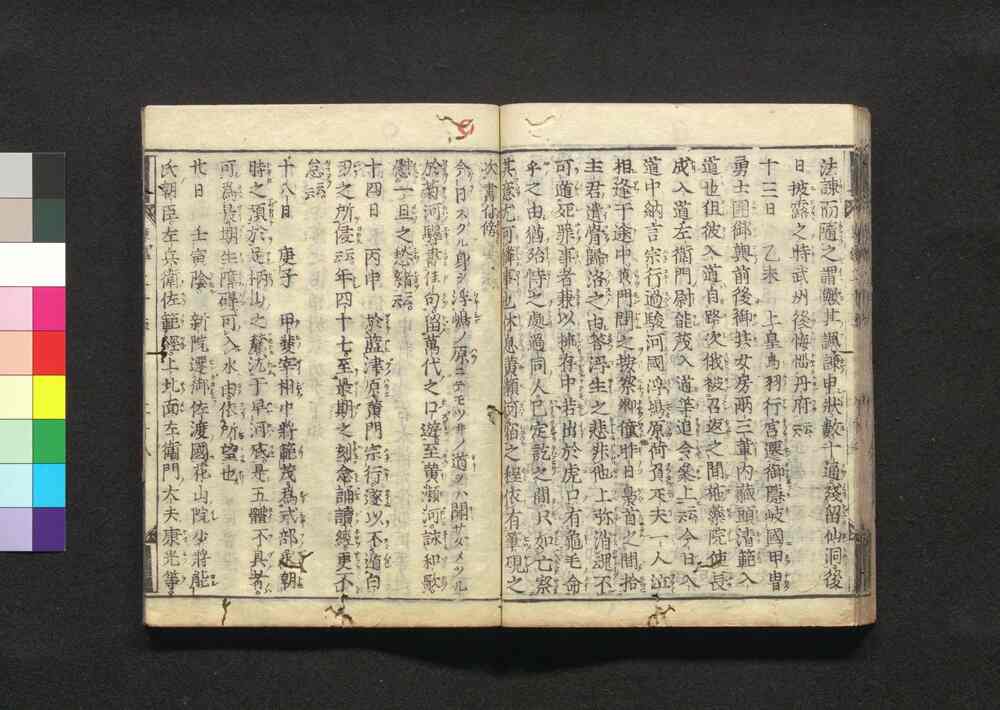 法諫而随之謂歟其諷諫申狀數十通殘留仙洞後
日披露之時武州後悔惱丹府云云
十三日　乙未　上皇鳥羽行宮遷御隱岐國甲冑
勇士圍御輿前後御共女房兩三輩內藏頭清範入
道也但彼入道自路次俄被召返之間施藥院使長
成入道左衛門尉能茂入道等追令參上云云今日入
道中納言宗行過駿河國浮嶋原荷負疋夫一人泣
相逢于途中黃門問之按察卿僮也昨日梟首之間拾
主君遺骨歸洛之由答浮生之悲非他上弥消魂不
可遁死罪事者兼以插存中若出於虎口有龜毛命
乎之由猶殆恃之處過同人已定訖之間只如亡察
其意尤可憐事也休息黃瀬河宿之程依有筆硯之
次書付傍
今日スクル身ヲ浮嶋ノ原ニテモツ井ノ道ヲハ聞サタメツル
於菊河驛書佳句留萬代之口遊至黃瀬河詠和歌
慰一旦之愁緒云云
十四日　丙申　於藍津原黃門宗行遂以不遁白
刃之所侵云云年四十七至最期之刻念誦讀經更不
怠云云
十八日　庚子　甲斐宰相中將範茂爲式部丞朝
時之預於足柄山之麓沈于早河底是五體不具者
可爲最期生障碍可入水由依所望也
廿日　壬寅陰　新院遷御佐渡國花山院少將能
氏朝臣左兵衛佐範經上北面左衛門大夫康光等